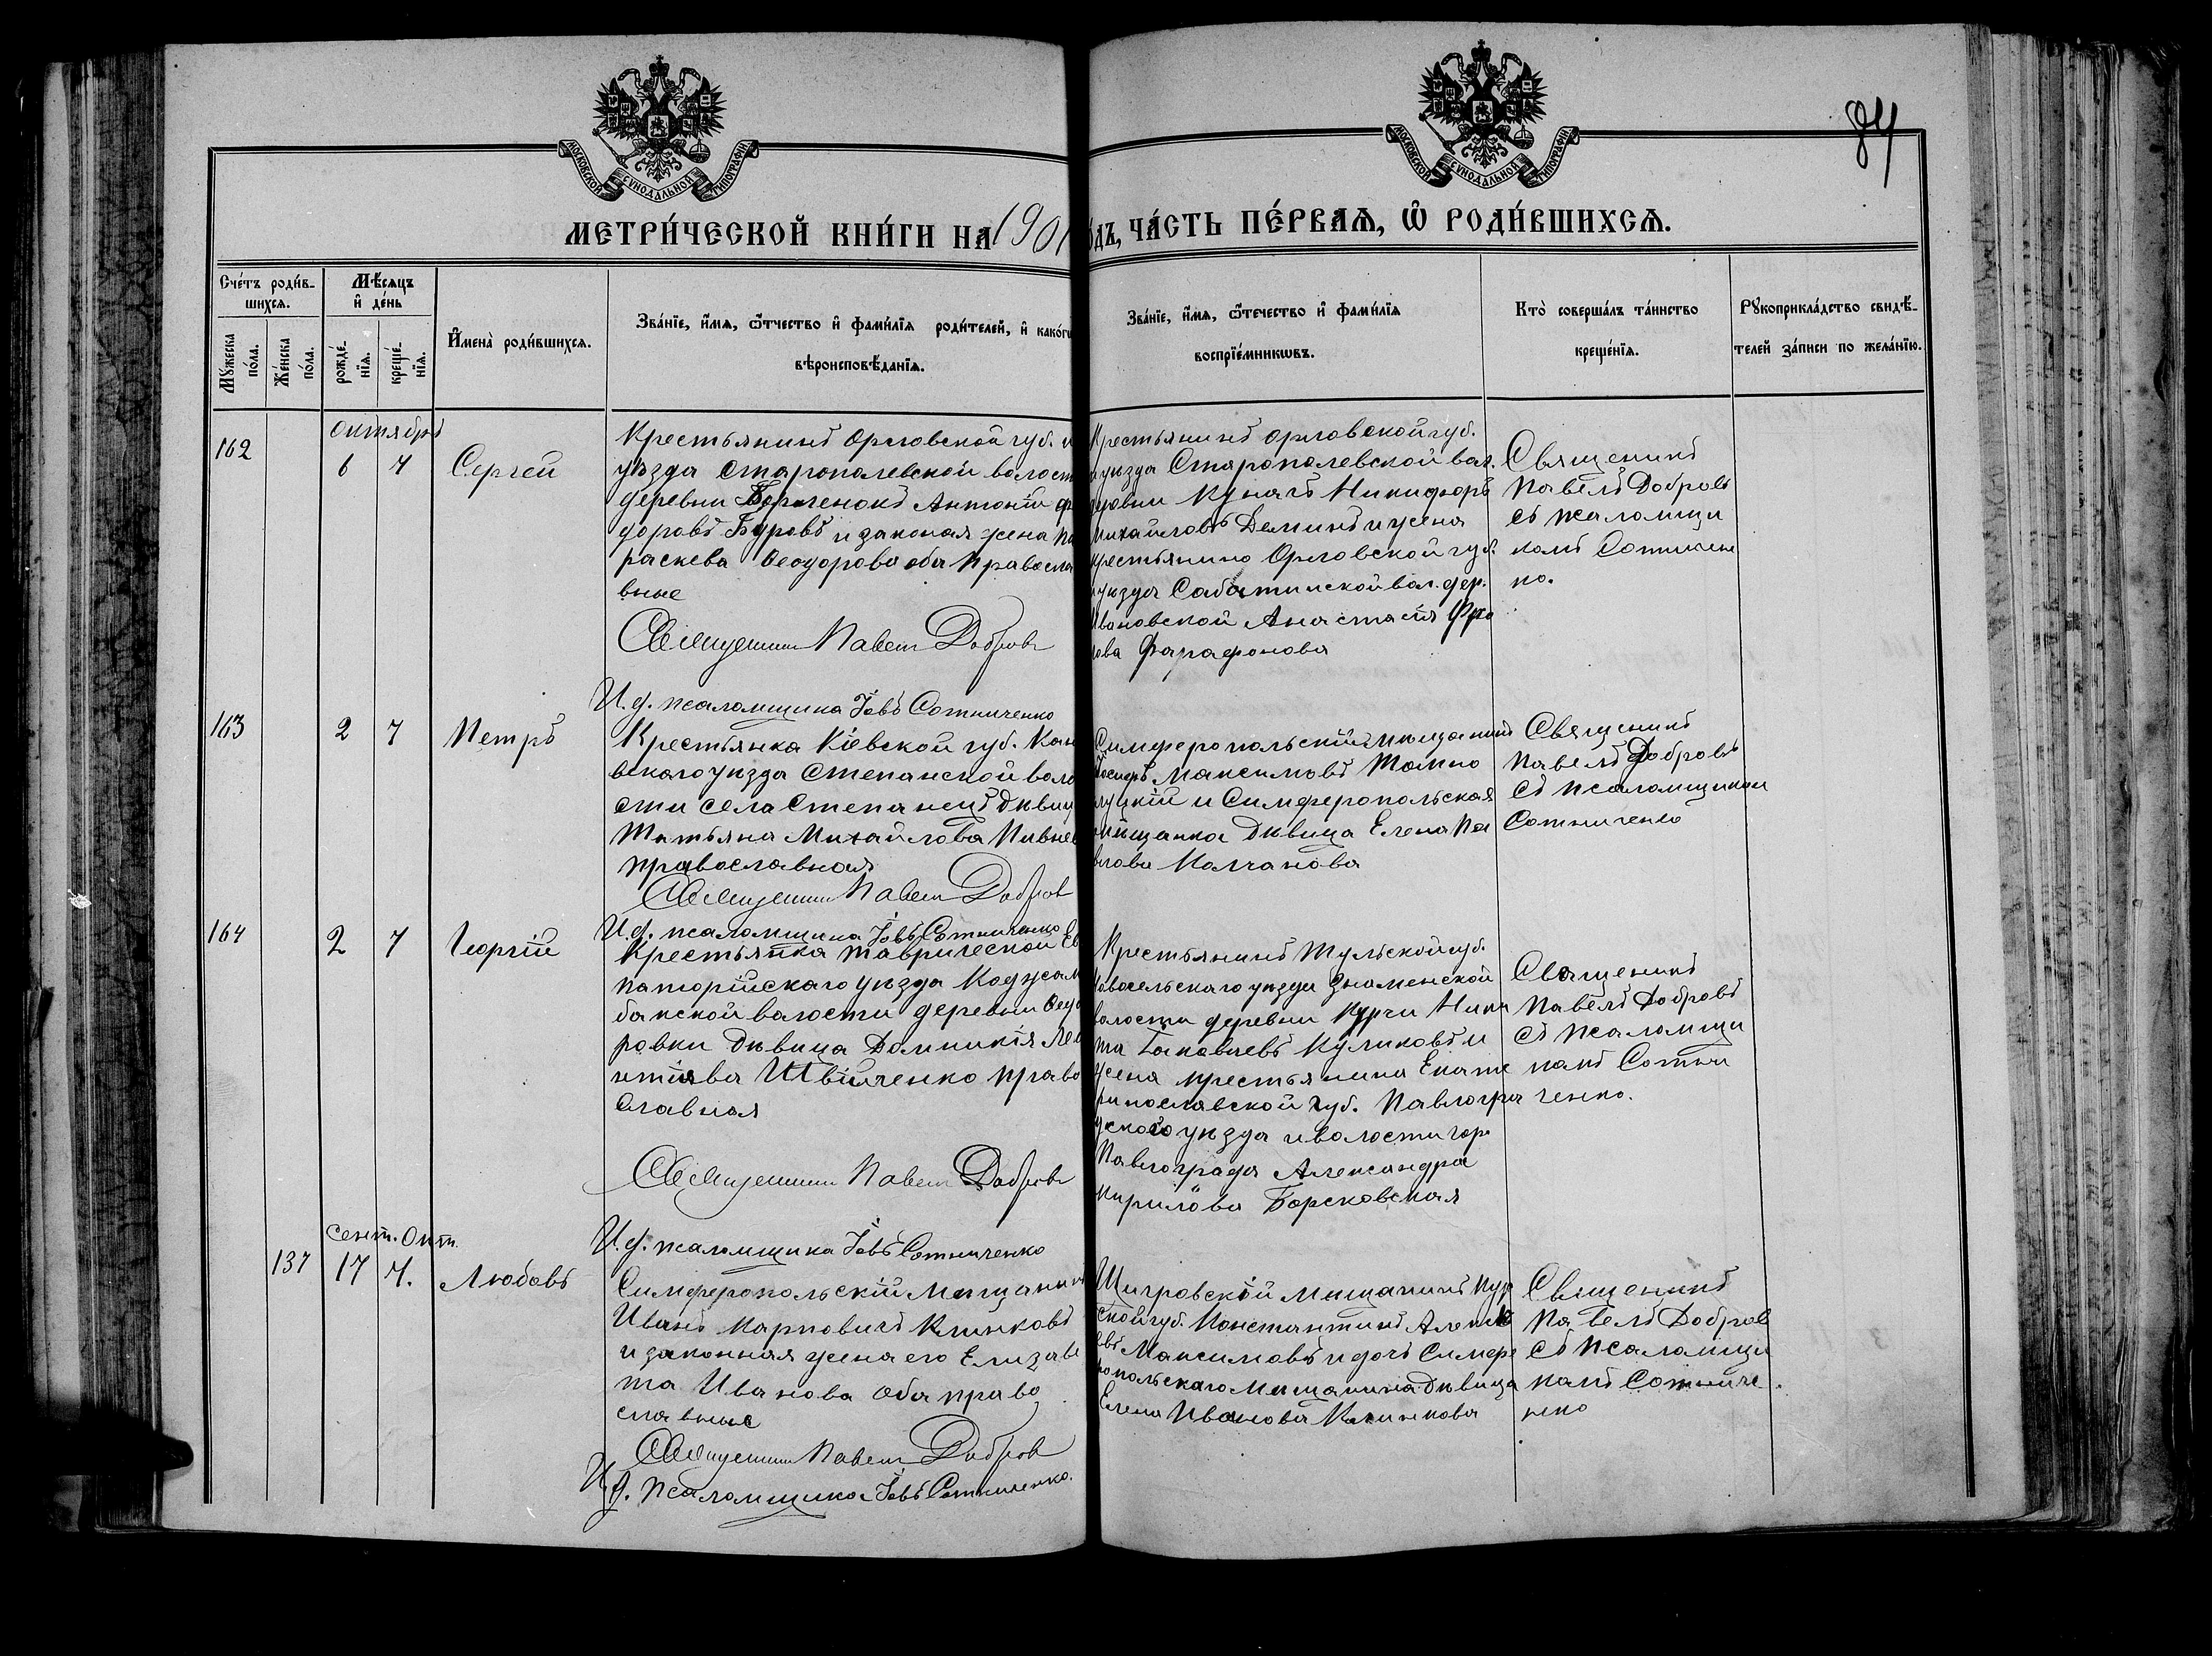 84
МОСКОВСКОЙ СУНОДАЛЬНОЙ ТИПОГРАФІИ
МОСКОВСКОЙ СУНОДАЛЬНОЙ ТИПОГРАФІИ
МЕТРИ́ЧЕСКОЙ КНИ́ГИ НА 1901
ЧА́СТЬ ПЕ́РВАѦ, Ѽ РОДИ́ВШИХСѦ.
Сче́тъ роди́в-
шихсѧ.
Мꙋжеска по́ла.
Же́нска по́ла.
Мѣсѧцъ
и҆ де́нь
рожде́-нїѧ.
креще́-нїѧ.
И҆мена̀ роди́вшихсѧ.
Зва́нїе, и҆́мѧ, ѻ҆́тчество и҆ фами́лїѧ роди́телей, и҆ како́гѡ
вѣроисповѣ́данїѧ.
Зва́нїе, и҆́мѧ, ѻ҆́течество и҆ фами́лїѧ
воспрїе́мникѡвъ.
Кто̀ соверша́лъ та́инство
креще́нїѧ.
Рꙋкоприкла́дство свидѣ́-
телей за́писи по жела́нїю.
162
октября
6 7
Сергей
Крестьянинъ Орловской губ. и
уѣзда Старополевской волост
деревни Антоній Фе
доровъ Буровъ и законая жена Па
раскева Ѳеодорова оба Правосла
вные
Священникъ Павелъ Добровъ
И.д. псаломщика Іовъ Сотниченко
Крестьянинъ Орловской губ.
уѣзда Старополевской вол.
Куначъ Никифоръ
Михайловъ Деминъ и жена
крестьянина Орловской губ.
уѣзда Саботинской вол. дер.
Ивановской Анастасія Фро
лова Фарафонова
Священикъ
Павелъ Добровъ
съ псаломщи
комъ Сотничен
ко.
163
2 7
Петръ
Крестьянка Кіевской губ. Кан
вскаго уѣзда Степанской воло
сти села Степанецъ дѣвиц
Татьяна Михайлова Пивнев
православная
Священникъ Павелъ Добров
И.д. псаломщика Іовъ Сотниченко
Симферопольскій мѣщанинъ
Іосифъ Максимовъ Томко
луцкій и Симферопольская
мѣщанка дѣвица Елена Па
влова Молчанова
Священикъ
Павелъ Добровъ
съ псаломщиком
Сотниченко
164
2 7
Георгій
Крестьянка Таврической Ев
паторійскаго уѣзда Коджам
бакской волости деревни Ѳедо
ровки дѣвица Домникія Лео
нтіева Швінченко право
славная
Священникъ Павелъ Добровъ
И.д. псаломщика Іовъ Сотниченко
Крестьянинъ Тульской губ.
Новосельскаго уѣзда Знаменской
волости деревни Курчи Ники
та Іаковлевъ Куликовъ и
жена крестьянина Екате
ринославской губ. Павлогра
дского уѣзда и волости гор
Павлограда Александра
Кирилова Борсковская
Священикъ
Павелъ Добровъ
съ псаломщи
комъ Сотни
ченко.
137
сент. Окт.
17 7.
Любовь
Симферопольскій мѣщанинъ
Иванъ Карповичъ Клинковъ
и законная жена его Елизаве
та Иванова оба право
славные
Священникъ Павелъ Добров
И.д. псаломщика Іовъ Сотниченко.
Щигровскій мѣщанинъ Кур
ской губ. Константинъ Алексѣ
евъ Максимовъ и дочь Симфе
ропольскаго мѣщанина дѣвица
Елена Иванова Клинкова
Священикъ
Павелъ Добров
съ псаломщи
комъ Сотниче
нко